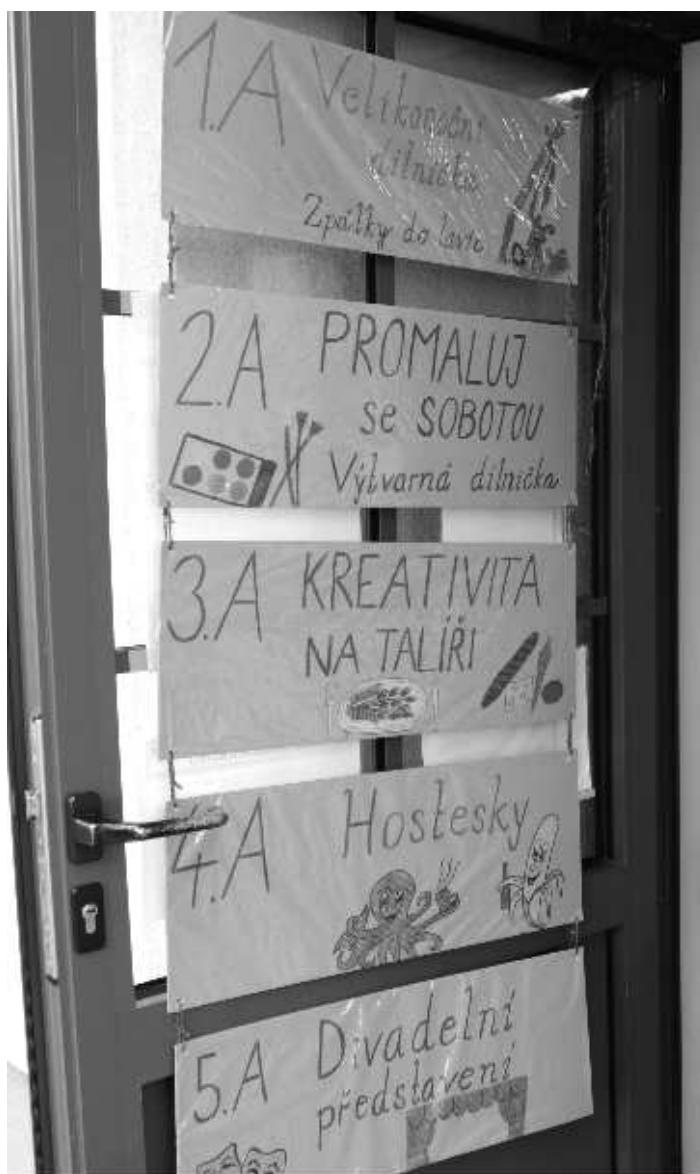 1.A Velikonoční
dílnička
Zpátky do lavic
2.A PROMALUJ
se SOBOTOU
Výtvarná dílnička
3.A KREATIVITA
NA TALÍŘI
4.A Hostesky
5.A Divadelní
představení